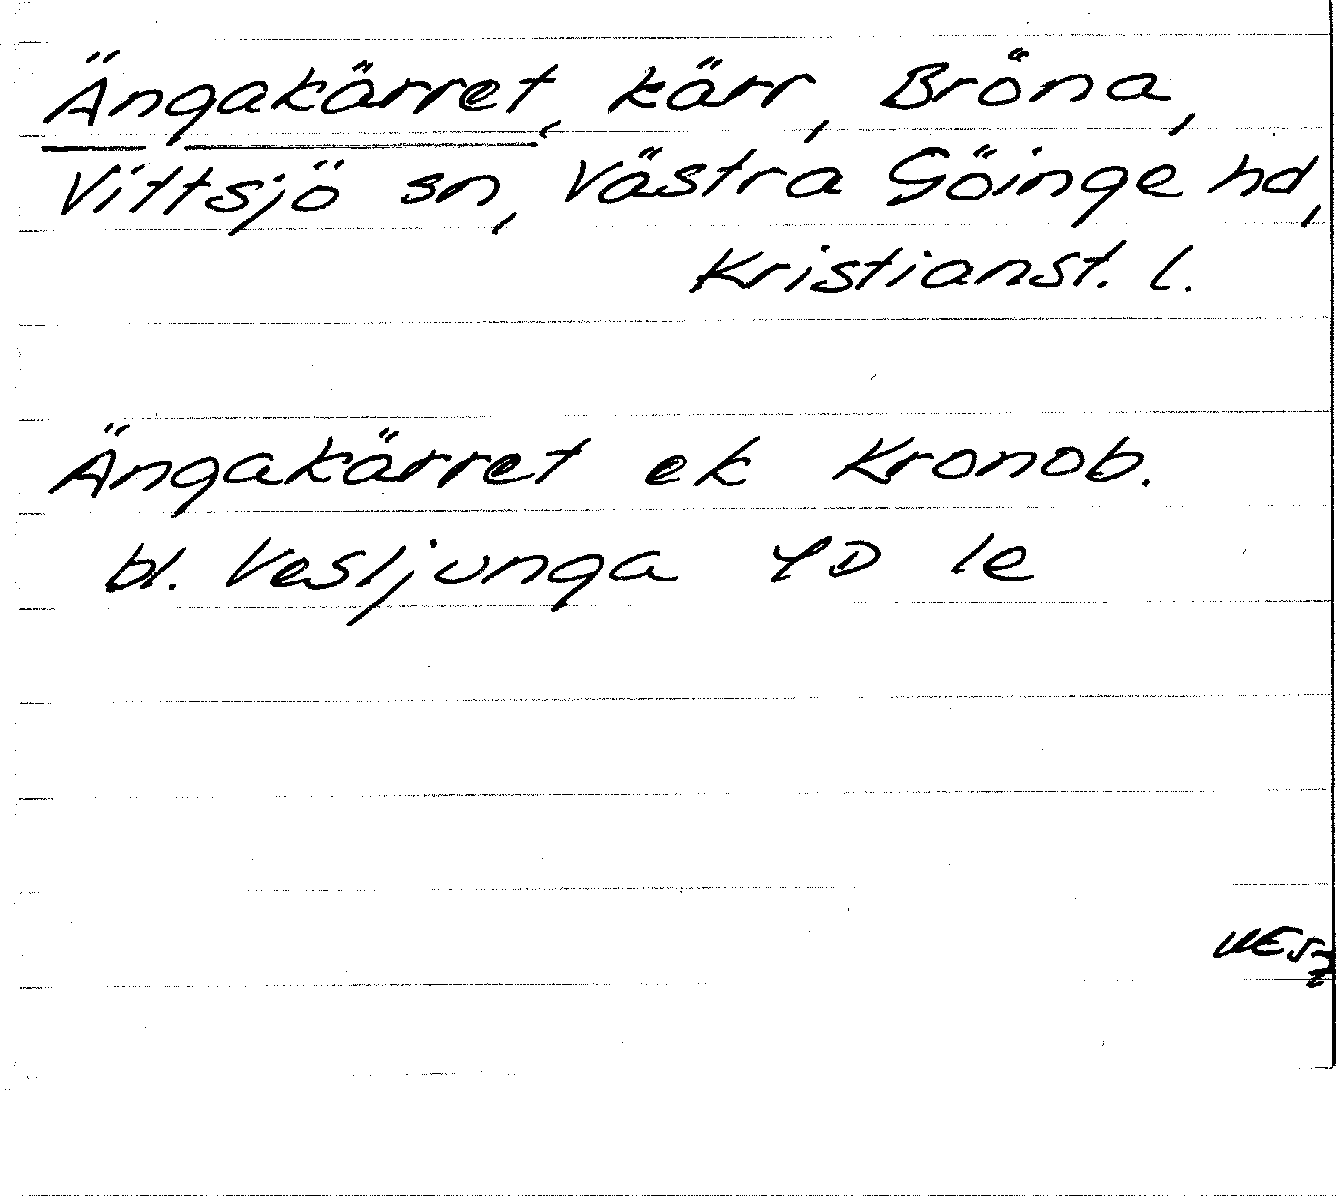 Ängakärret, kärr, Bröna,
Vittsjö sn, Västra Göinge hd,
Kristianst. l.
Ängakärret ek Kronob.
bl. Vesljunga 4D le